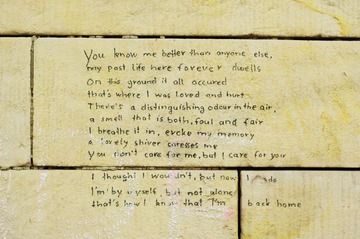 You know me better than anyone else,
my past life here forever dwells
On this ground it all occured
that's where I was loved and hurt
There's a distinguishing odour in the air,
a smell that is both, foul and fair
I breathe it in, evoke my memory
a lovely shiver caresses me
You don't care for me, but I care for you
I thought I wouldn't, but now I do
I'm by myself, but not alone
that's how I know that I'm back home